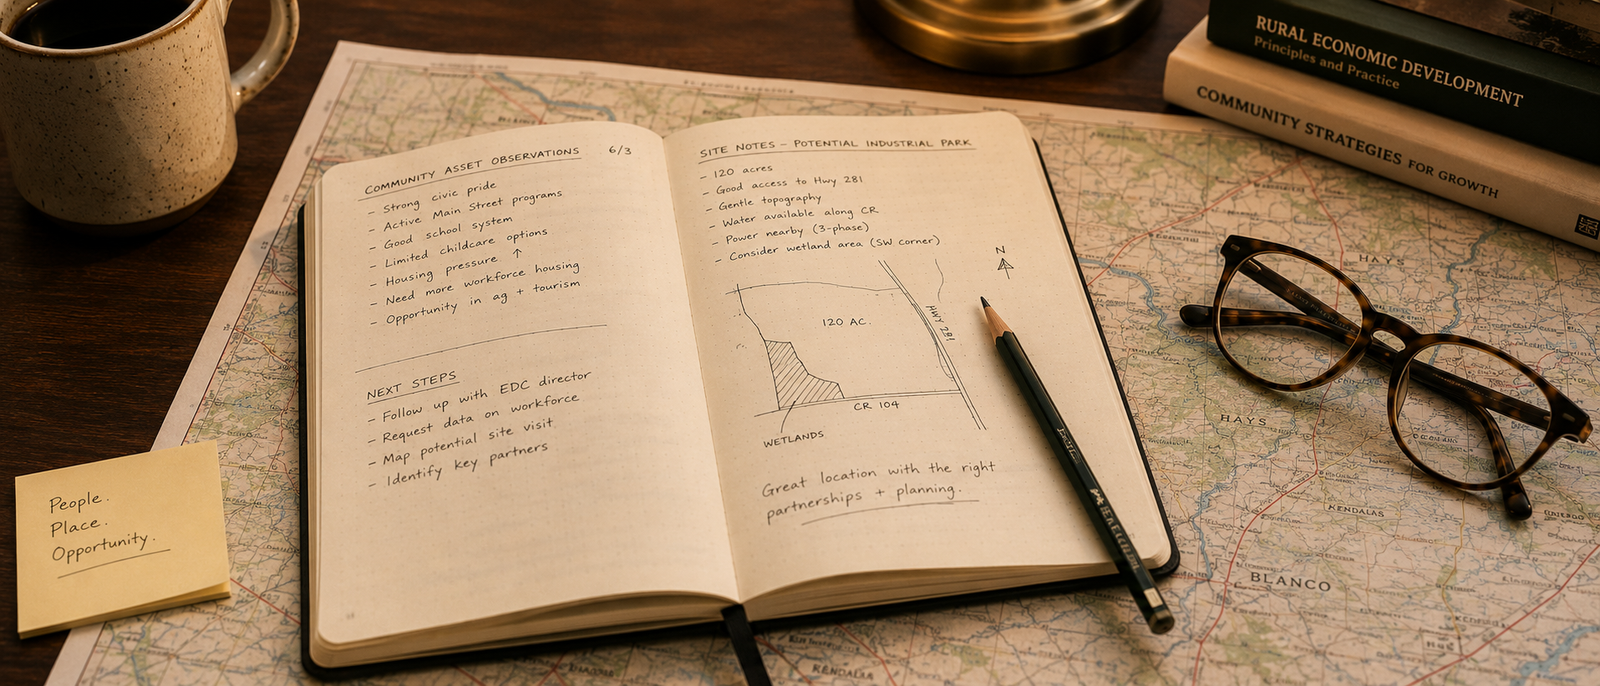 COMMUNITY ASSET OBSERVATIONS 6/3
- Strong civic pride
- Active Main Street programs
- Good school system
- Limited childcare options
- Housing pressure ↑
- Need more workforce housing
- Opportunity in ag + tourism
NEXT STEPS
- Follow up with EDC director
- Request data on workforce
- Map potential site visit
- Identify key partners
SITE NOTES - POTENTIAL INDUSTRIAL PARK
- 120 acres
- Good access to Hwy 281
- Gentle topography
- Water available along CR
- Power nearby (3-phase)
- Consider wetland area (SW corner)
N
120 AC.
HWY 281
CR 104
WETLANDS
Great location with the right
partnerships + planning.
People.
Place.
Opportunity.
RURAL ECONOMIC DEVELOPMENT
Principles and Practice
COMMUNITY STRATEGIES FOR GROWTH
HAYS
HAYS
KENDALAS
BLANCO
KENDALLA